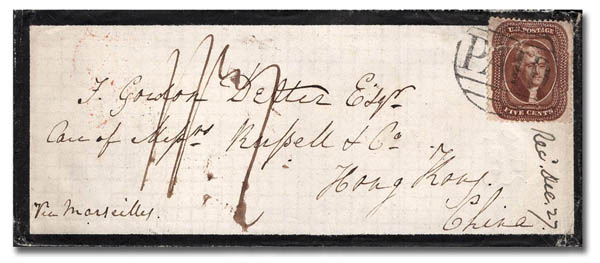 U.S. POSTAGE
FIVE CENTS
PAID
F. Gordon Dexter Esqr
Care of Messrs Russell & Co
Hong Kong
China
Via Marseilles.
Rec'd Dec. 27